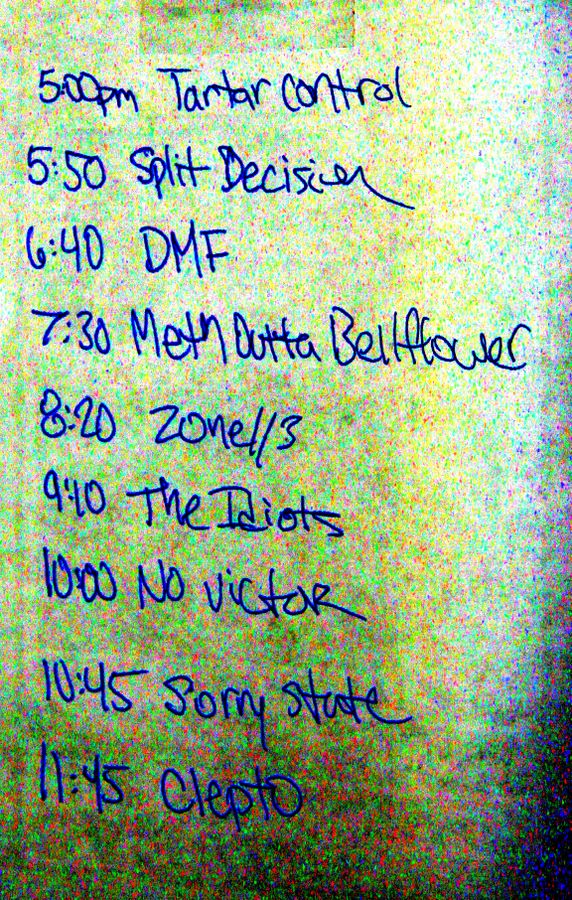 5:00pm Tartar Control
5:50 Split Decision
6:40 DMF
7:30 Meth Outta Bellflower
8:20 Zone//3
9:10 The Idiots
10:00 No Victor
10:45 Sorry State
11:45 Clepto